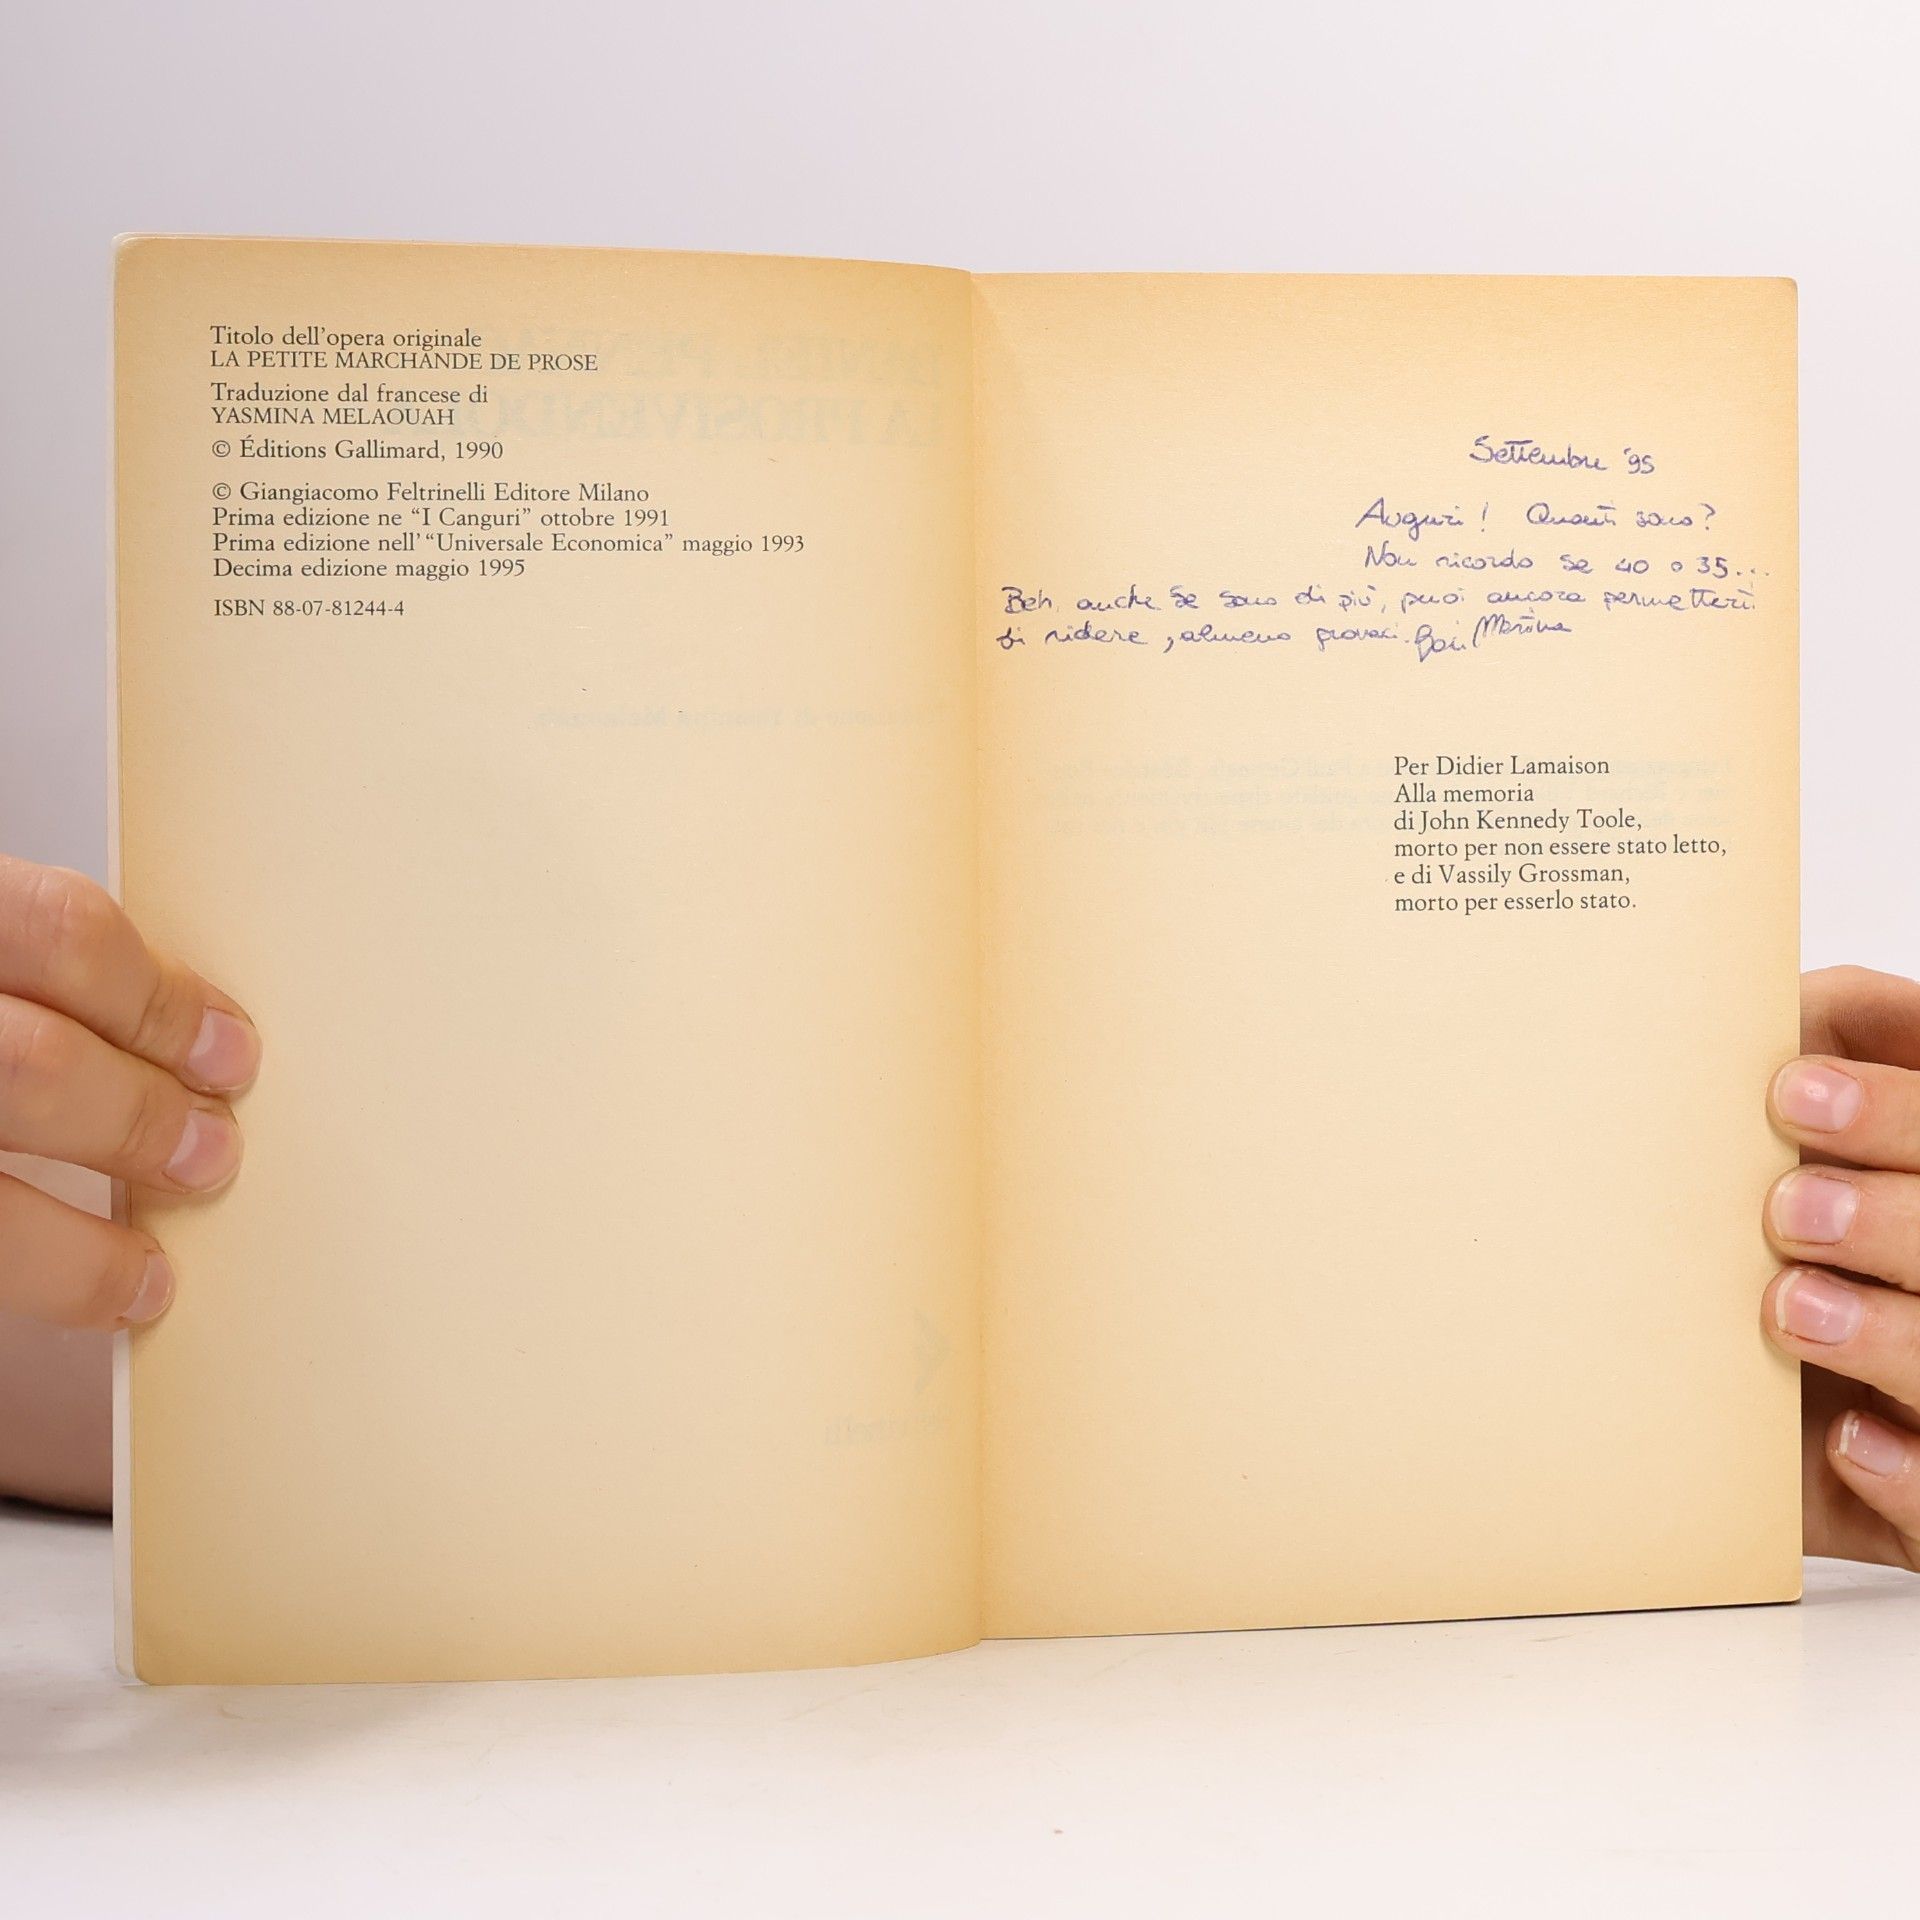 Titolo dell'opera originale
LA PETITE MARCHANDE DE PROSE
Traduzione dal francese di
YASMINA MELAOUAH
© Éditions Gallimard, 1990
© Giangiacomo Feltrinelli Editore Milano
Prima edizione ne “I Canguri” ottobre 1991
Prima edizione nell'“Universale Economica” maggio 1993
Decima edizione maggio 1995
ISBN 88-07-81244-4
Settembre '95
Auguri! Quanti sono?
Non ricordo se 40 o 35...
Beh, anche se sono di più, puoi ancora permetterti
di ridere, almeno provaci. Martina
Per Didier Lamaison
Alla memoria
di John Kennedy Toole,
morto per non essere stato letto,
e di Vassily Grossman,
morto per esserlo stato.